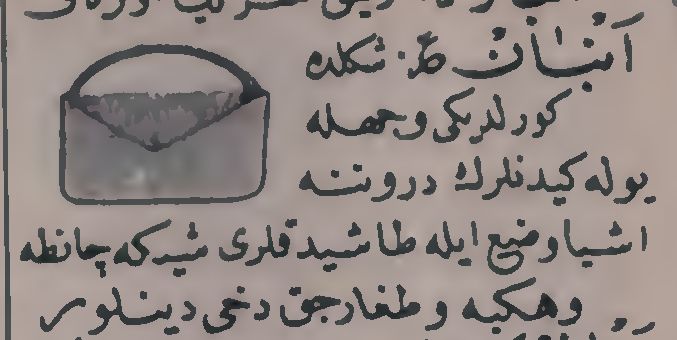 انبان ط. شكلده
كورلديكى وجهله
يوله كيدنلرك دروننه
اشيا وضع ايله طاشيدقلرى شيدركه چانطه
وهكبه وطغارجق دخى دينلور